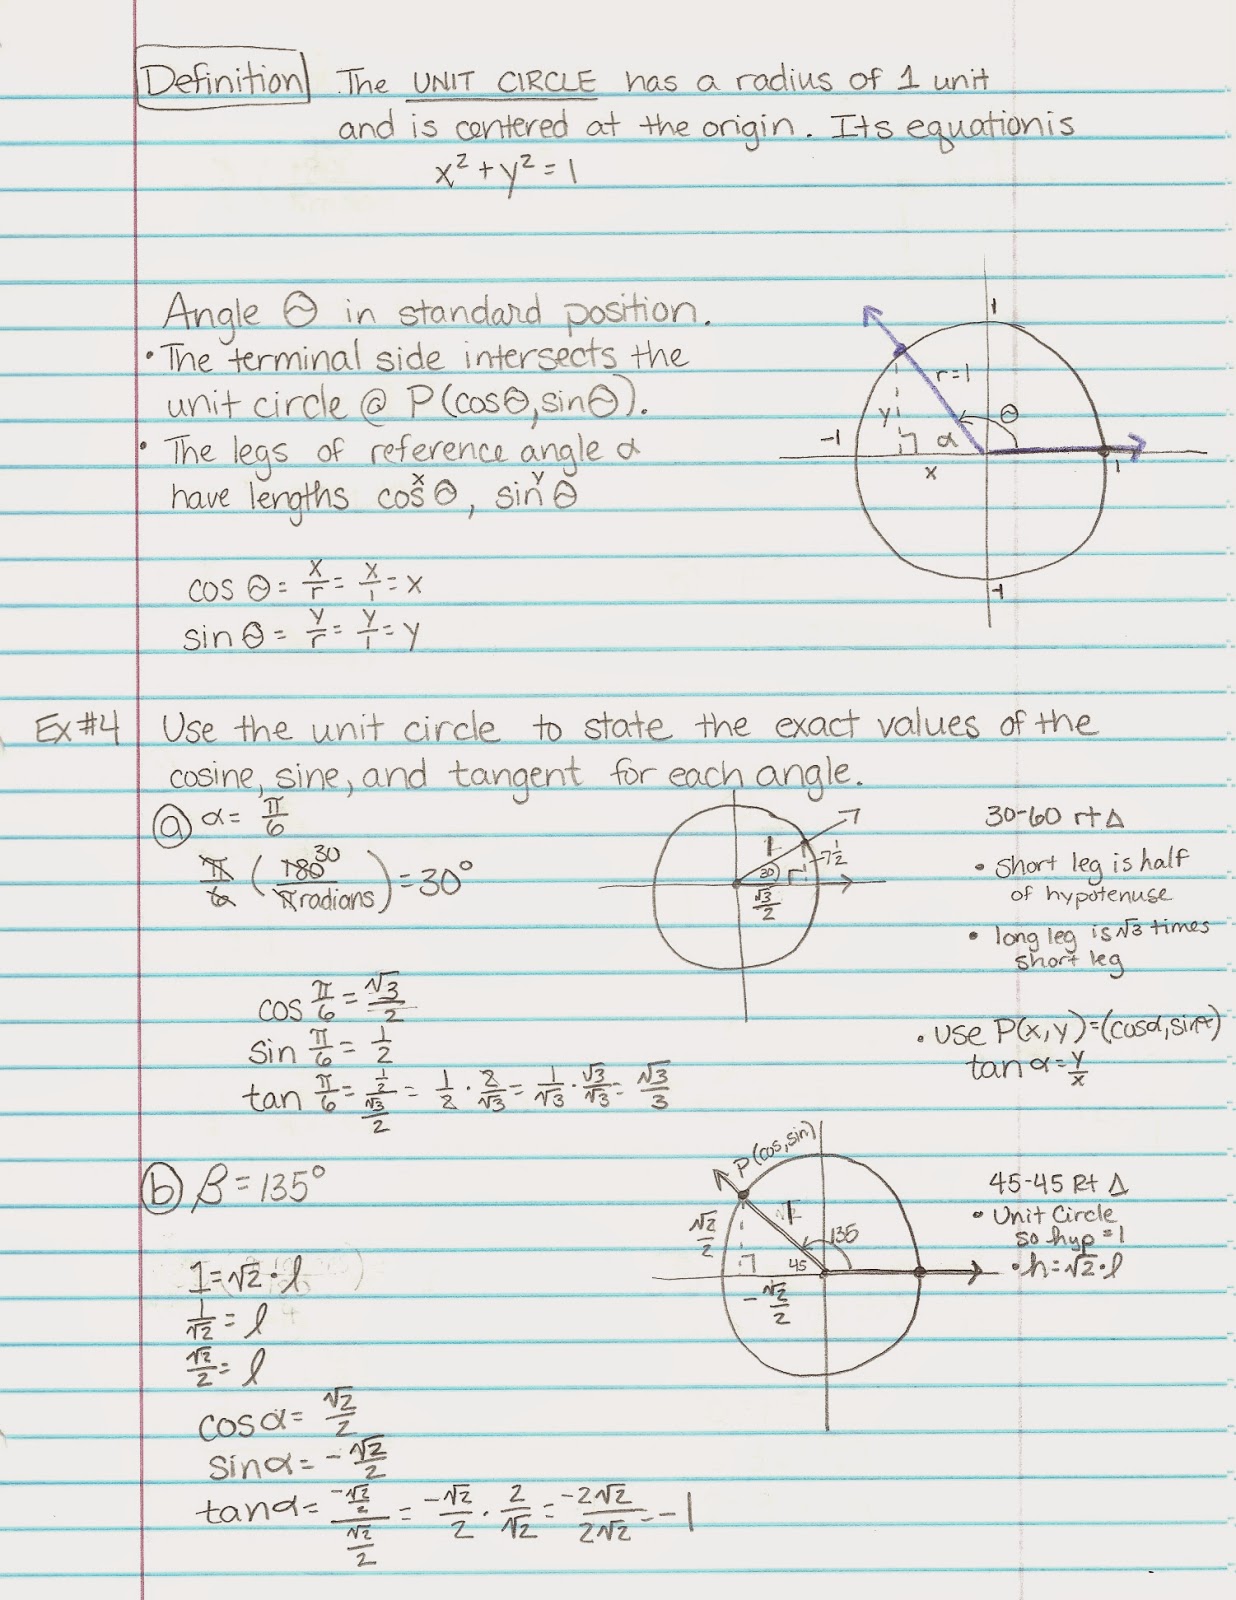 Definition The UNIT CIRCLE has a radius of 1 unit
and is centered at the origin. Its equation is
x² + y² = 1
Angle θ in standard position.
• The terminal side intersects the
unit circle @ P(cosθ, sinθ).
• The legs of reference angle α
have lengths cosθ, sinθ
x y
cos θ = x/r = x/1 = x
sin θ = y/r = y/1 = y
1
r=1
y
θ
-1
α
x
1
-1
Ex #4 Use the unit circle to state the exact values of the
cosine, sine, and tangent for each angle.
ⓐ α = π/6
π/6 (180/π radians) = 30°
30
1
30
1/2
√3/2
30-60 rt Δ
• short leg is half
of hypotenuse
• long leg is √3 times
short leg
cos π/6 = √3/2
sin π/6 = 1/2
tan π/6 = (1/2)/(√3/2) = 1/2 · 2/√3 = 1/√3 · √3/√3 = √3/3
• use P(x,y)=(cosα, sinα)
tan α = y/x
ⓑ β = 135°
P(cos, sin)
√2/2
1
135
45
-√2/2
45-45 Rt Δ
• Unit Circle
so hyp = 1
• h = √2 · l
1 = √2 · l
1/√2 = l
√2/2 = l
cos α = √2/2
sin α = -√2/2
tan α = (-√2/2)/(√2/2) = -√2/2 · 2/√2 = -2√2/2√2 = -1